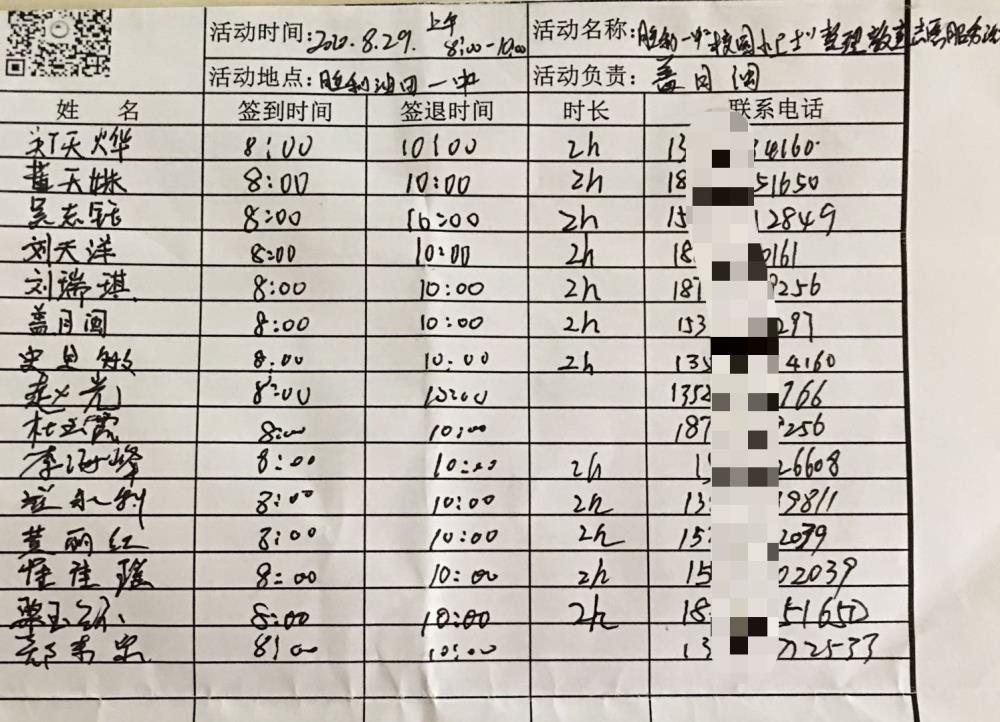 活动时间：2020.8.29. 上午 8:00-10:00 活动名称：胜利一中"校园小巴士"整理 志愿服务活
活动地点：胜利油田一中 活动负责：盖月闽
姓 名 签到时间 签退时间 时长 联系电话
刘天烨 8:00 10:00 2h 13 4160
董天姝 8:00 10:00 2h 18 51650
吴志钰 8:00 10:00 2h 15 12849
刘天洋 8:00 10:00 2h 18 0161
刘瑞琪 8:00 10:00 2h 187 8256
盖月闽 8:00 10:00 2h 153 297
史 敏 8:00 10:00 2h 135 4160
赵 光 8:00 10:00 1352 766
杜玉霞 8:00 10:00 187 256
李海峰 8:00 10:00 2h 1 26608
8:00 10:00 2h 13 19811
黄丽红 8:00 10:00 2h 15 2039
佳瑶 8:00 10:00 2h 15 02039
玉 8:00 10:00 2h 18 51650
8:00 10:00 13 22533